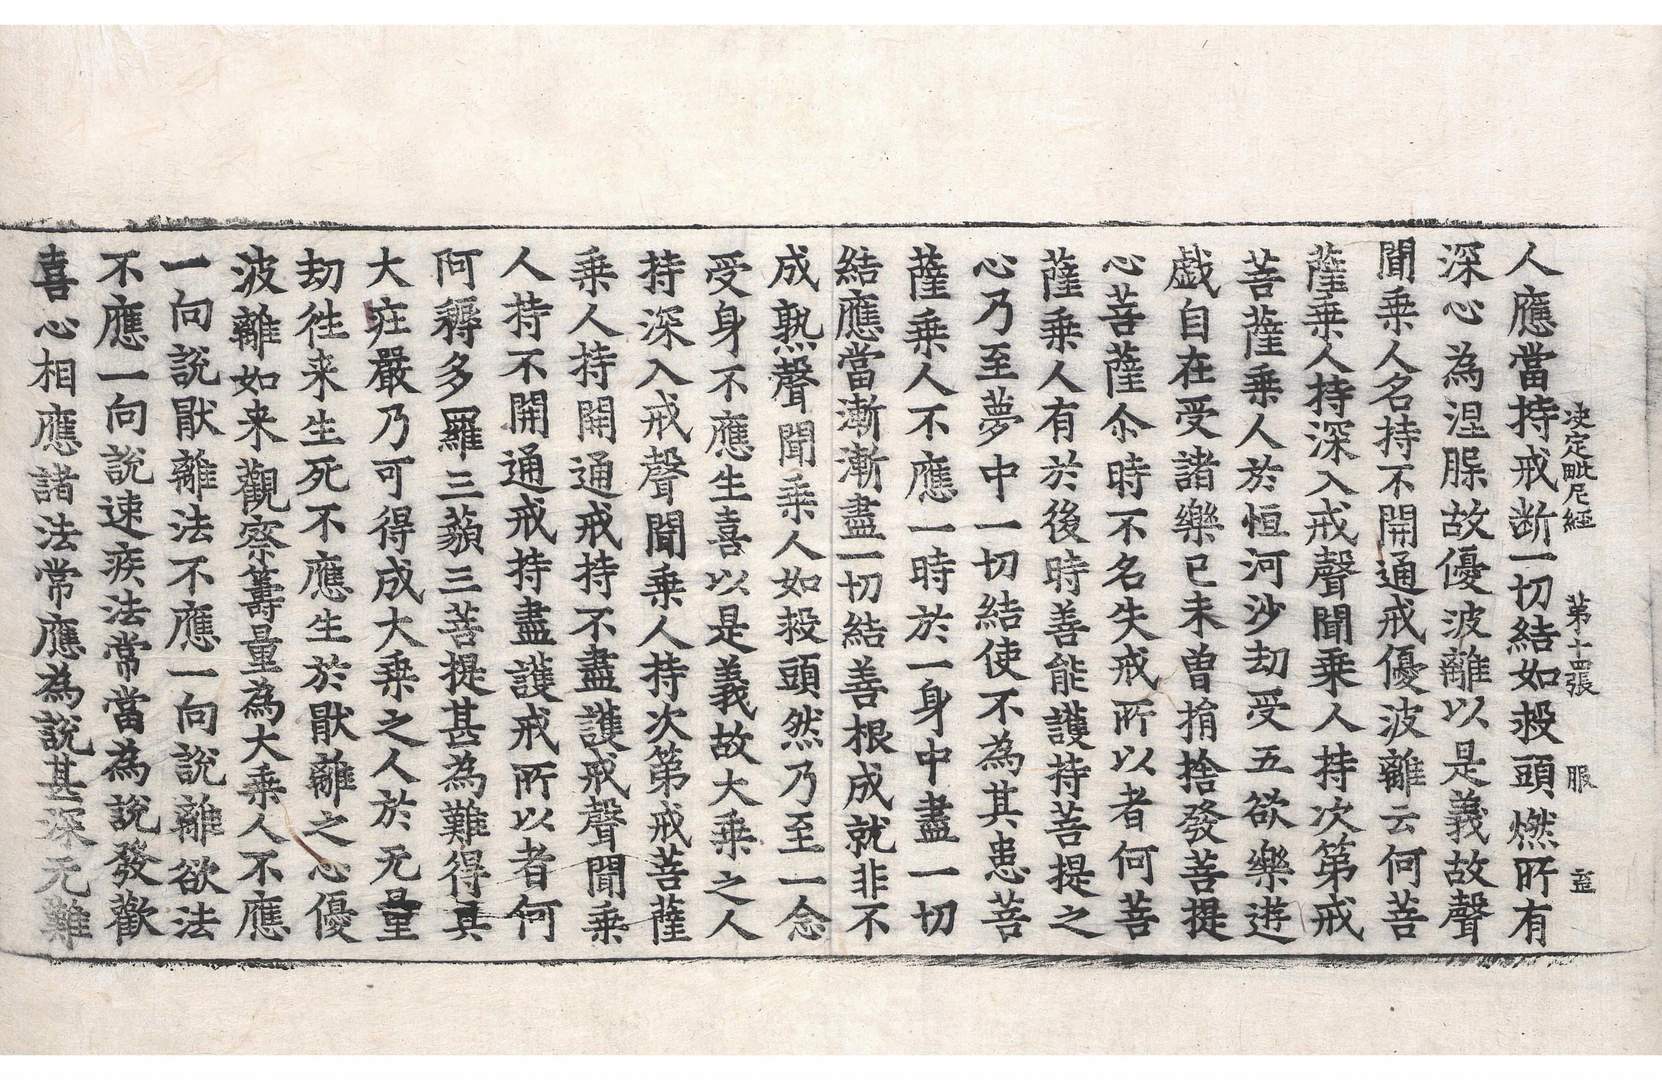 決定毗尼經 第十四張 服
人應當持戒断一切結如救頭燃所有
深心為涅槃故優波離以是義故聲
聞乗人名持不開通戒優波離云何菩
薩乗人持深入戒聲聞乗人持次第戒
菩薩乗人於恒河沙劫受五欲樂遊
戯自在受諸樂已未曽捐捨發菩提
心菩薩尒時不名失戒所以者何菩
薩乗人有於後時善能護持菩提之
心乃至夢中一切結使不為其患菩
薩乗人不應一時於一身中盡一切
結應當漸漸盡一切結善根成就非不
成熟聲聞乗人如救頭然乃至一念
受身不應生喜以是義故大乗之人
持深入戒聲聞乗人持次第戒菩薩
乗人持開通戒持不盡護戒聲聞乗
人持不開通戒持盡護戒所以者何
阿耨多羅三藐三菩提甚為難得具
大疘嚴乃可得成大乗之人於无量
劫徃来生死不應生於猒離之心優
波離如来觀察籌量為大乗人不應
一向說猒離法不應一向說離欲法
不應一向說速疾法常當為說發歡
喜心相應諸法常應為說甚深无難